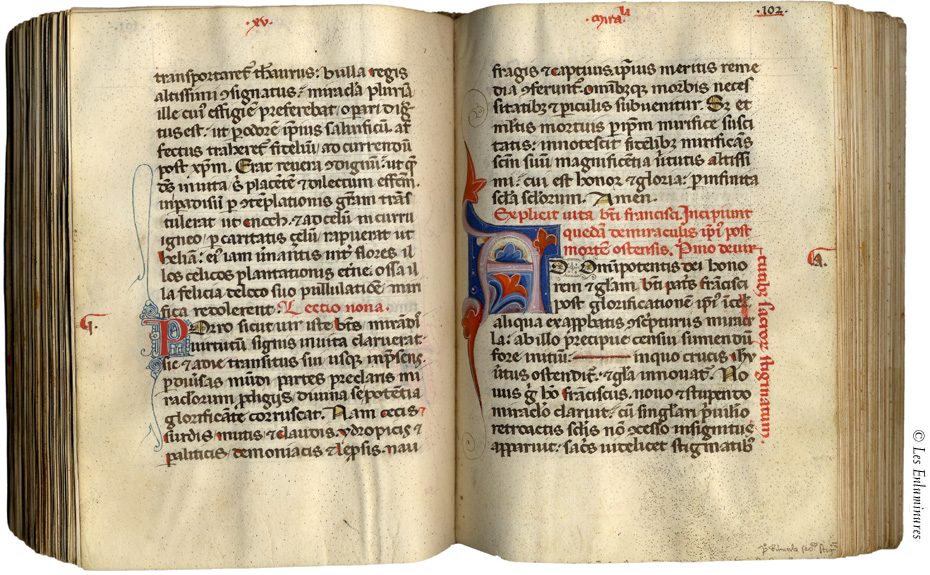 ·xv·
transportaret᷒ thaurus: bulla regis
altissimi ꝯsignatus: miracla pluria
ille cui effigiē preferebat opari dig
tus est: ut podorē ipius salutificū af
fectus traheret fidelium ad currendū
post xpm. Erat reuera ꝯdignū: ut
des inuita placētē & dilectum
inpadisū p ꝯtēplationis gram trās
tulerat ut enoch. & ad celū in curru
igneo p caritatis çelū rapuerat ut
helian: ei iam int flores il
los celicos plantationis eterne ossa il
la felicia deloco suo pullulatiōe miri
fica redolerent. Lectio nona.
Porro sicut uir iste bts mirādis
uirtutū signis inuita claruerat:
sic & adie transitus sui usq mpsens
pdiusas mūdi partes preclaris mi
raclorum pdigijs diuina se potētia
glorificāte corruscat. Nam cecis &
surdis mutis & claudis. ydropicis &
paliticis demoniacis & lepsis. nau
mira la
·102·
fragis & captiuis ipius meritis reme
dia ꝯferunt. omībzq morbis neces
sitatibz & piculis subuenitur. Sz et
mltis mortuis p ipm mirifice susci
tatis: innotescit fidelibz mirificans
scm suū magnificētia uirtutis altissi
mi: cui est honor & gloria: p infinita
scla sclorum. Amen.
Explicit uita bti francisci. Incipiunt
quedā de miraculis ipi post
mortē ostensis. Pmo de uir
tutibz sacror stigmatum.
Ad Omīpotentis dei hono
rem & glam bti patris frācisci
post glorificationē ipi ī cel
aliqua ex appbatis ꝯscpturus mirac
la: ab illo precipue censui sumendū
fore initiū: inquo crucis ihu
uirtus ostendit. & gla innouat. No
uus g hō franciscus. nouo & stupendo
miraclo claruit. cū singlari priuilio
retroactis sclis nō ꝯcesso insignitus
apparuit: sacris uidelicet stigmatibz
© Les Enluminures